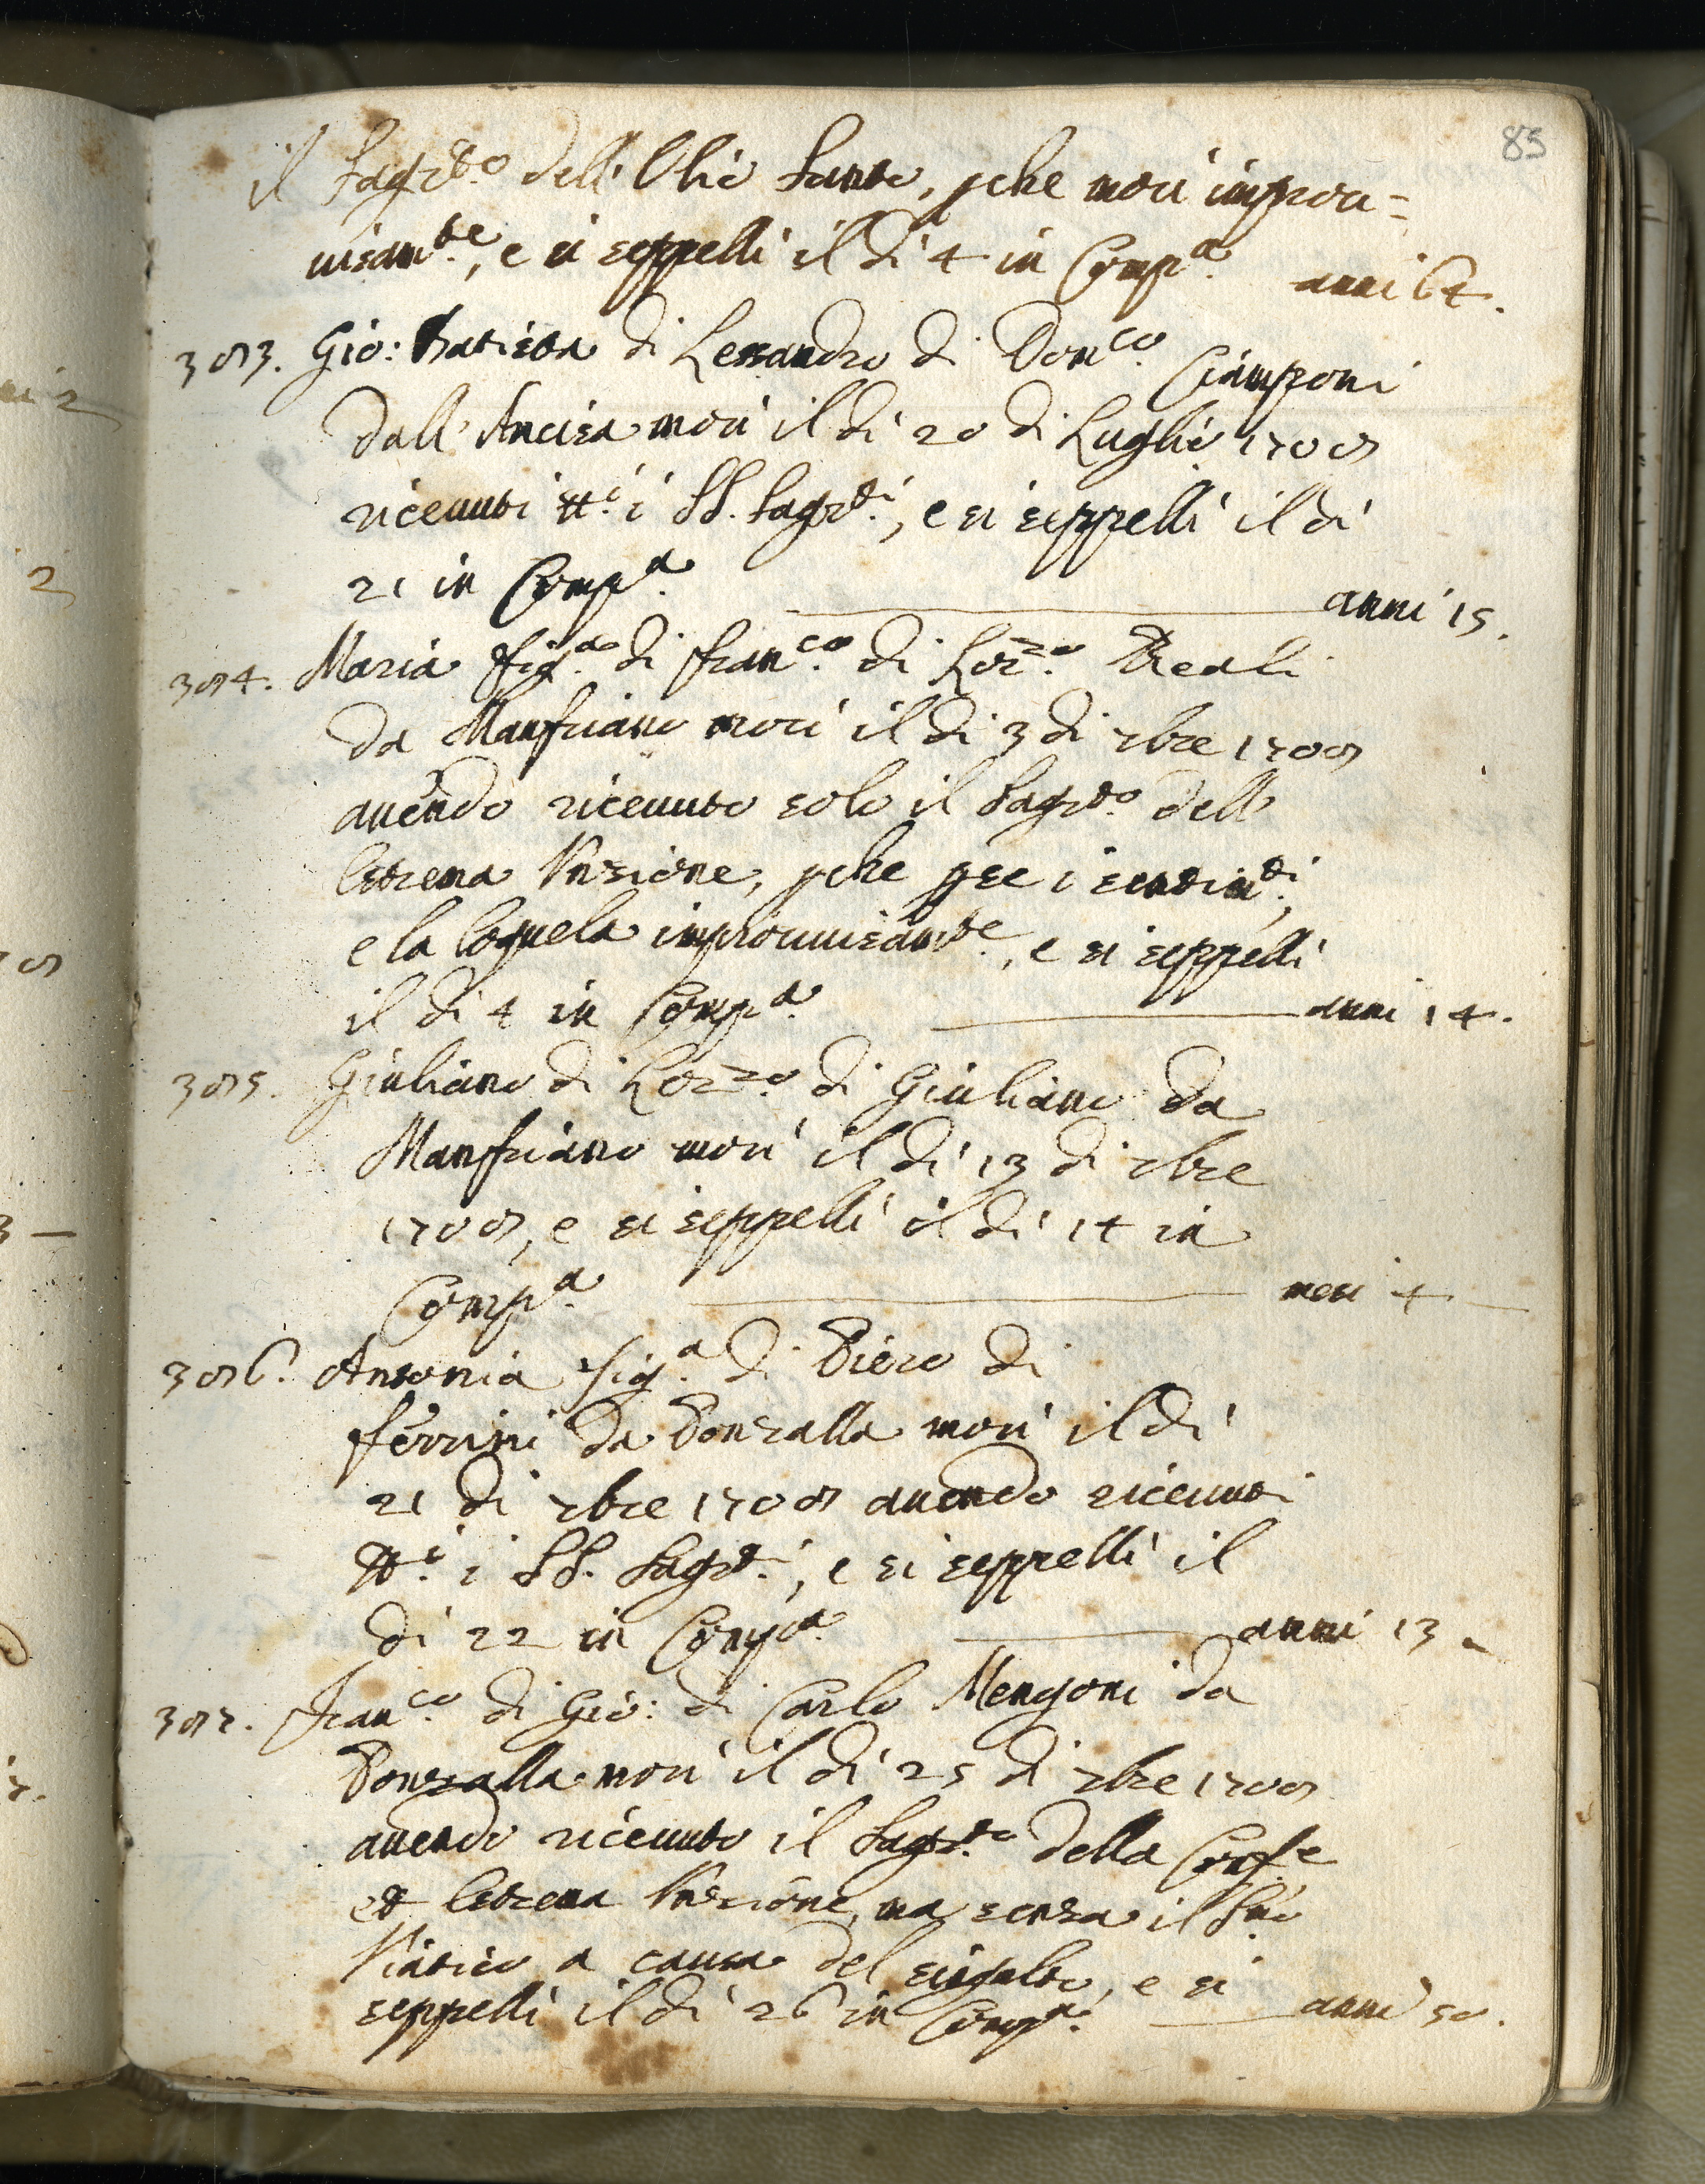 83
il Sagr.to dell'Olio Santo, pche morì improu=
uisam.te, e si seppellì il dì 4 in Comp.a anni 64.
383. Gio: Batista di Lessandro di Dom.co Ciamponi
dall'Ancisa morì il dì 20 di Luglio 1708
riceuuti tt.i i SS. Sagr.ti, e si seppellì il dì
21 in Comp.a anni 15.
384. Maria fig.a di Fran.co di Lor.zo Reali
da Manfriano morì il dì 3 di 7bre 1708
auendo riceuuto solo il Sagr.to dell
Estrema Unzione, pche pse i sentim.ti,
e la loquela improuuisam.te, e si seppellì
il dì 4 in Comp.a anni 14.
385. Giuliano di Lor.zo di Giuliano da
Manfriano morì il dì 13 di 7bre
1708, e si seppellì il dì 14 in
Comp.a mesi 4
386. Antonia fig.a di Piero di
Ferrini da Ponzalla morì il dì
21 di 7bre 1708 auendo riceuuti
tt.i i SS. Sagr.ti, e si seppellì il
dì 22 in Comp.a anni 13
387. Fran.co di Gio: di Carlo Mengoni da
Ponzalla morì il dì 25 di 7bre 1708
auendo riceuuto il Sagr.to della Conf.e
et Estrema Unzione, ma senza il S.mo
Viatico a causa del singulto, e si
seppellì il dì 26 in Comp.a anni 50.